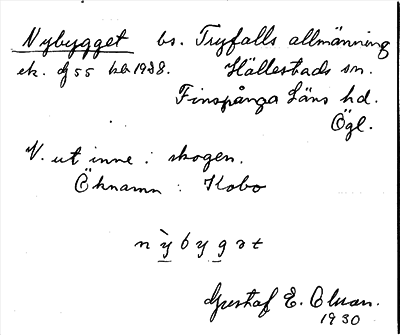 Nybygget bs. Tryfalls allmänning
ek. dg 55 bl. 1938. Hällestads sn.
Finspånga läns hd.
Ögl.
N. ut inne i skogen.
Öknamn: Kobo
nỳbygət
Gustaf E. Olsson.
1930